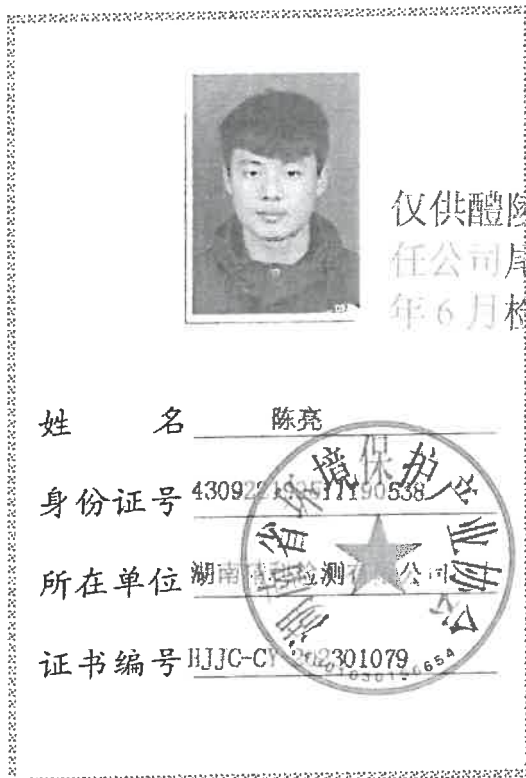 仅供醴陵
任公司尾
年6月检
姓名 陈亮
身份证号
所在单位 湖南 检测 公司
证书编号 HJJC-CY 301079
湖南省环境保护产业协会